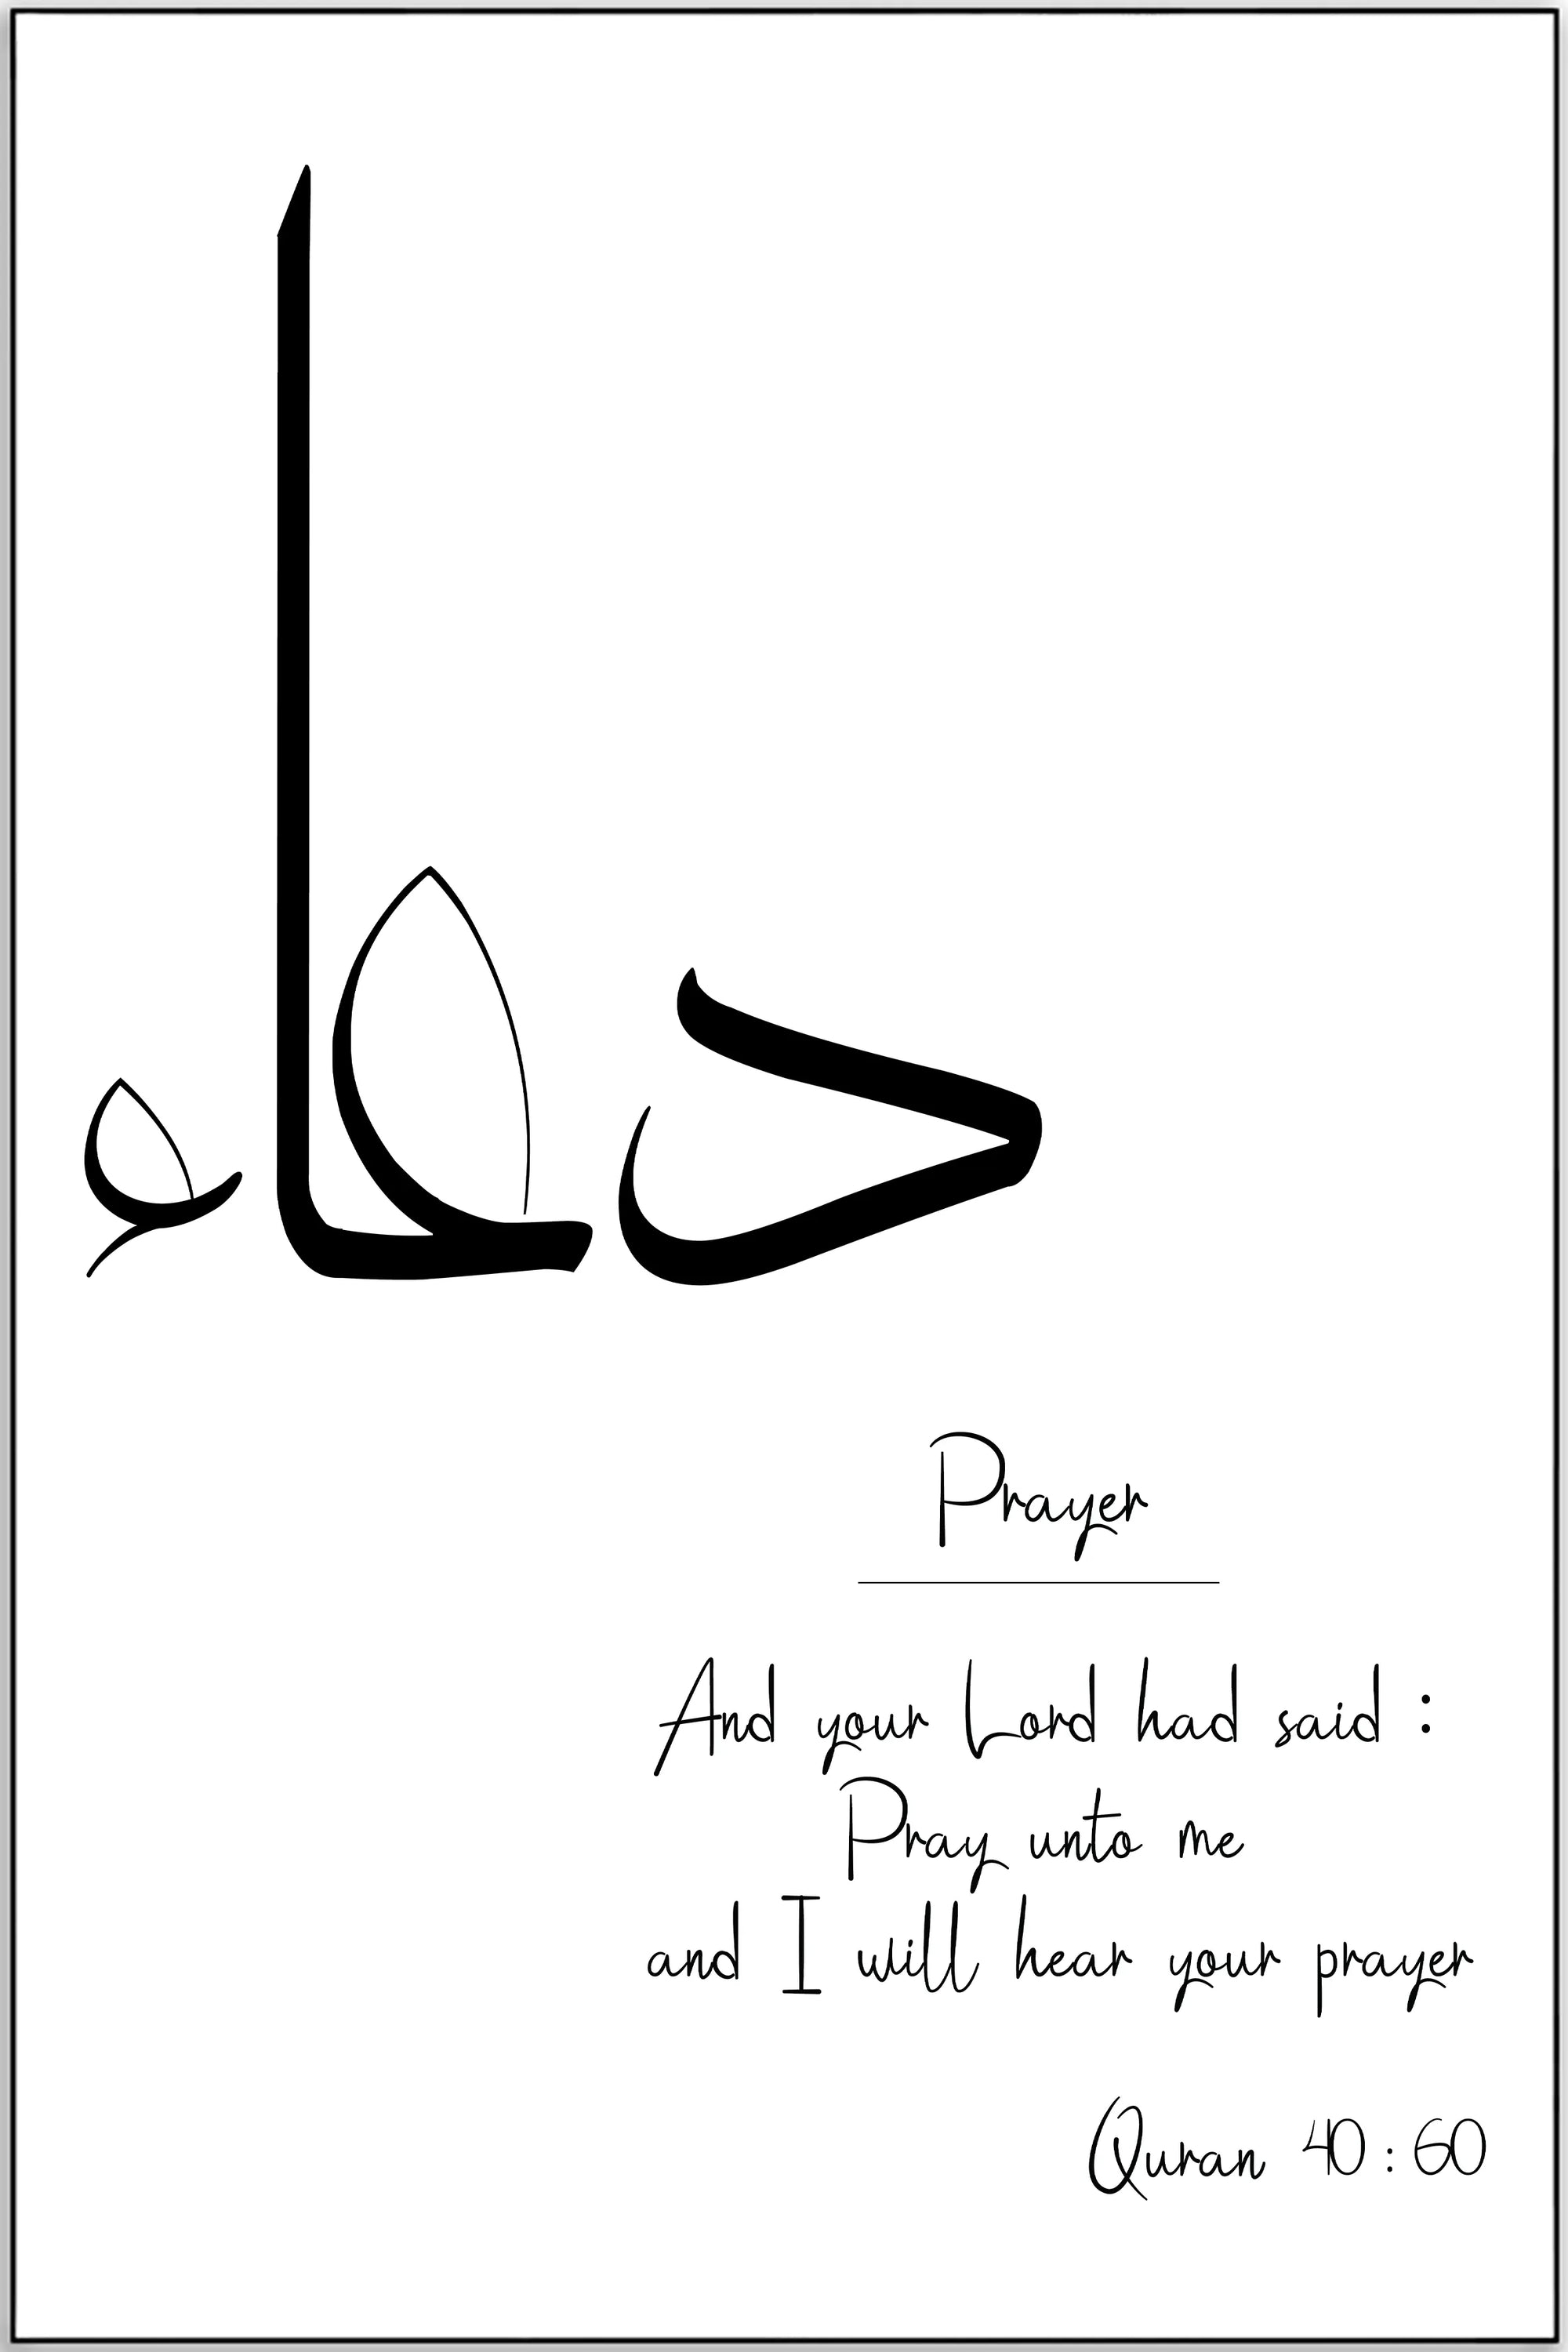 دعاء
Prayer
And your Lord had said :
Pray unto me
and I will hear your prayer
Quran 40 : 60